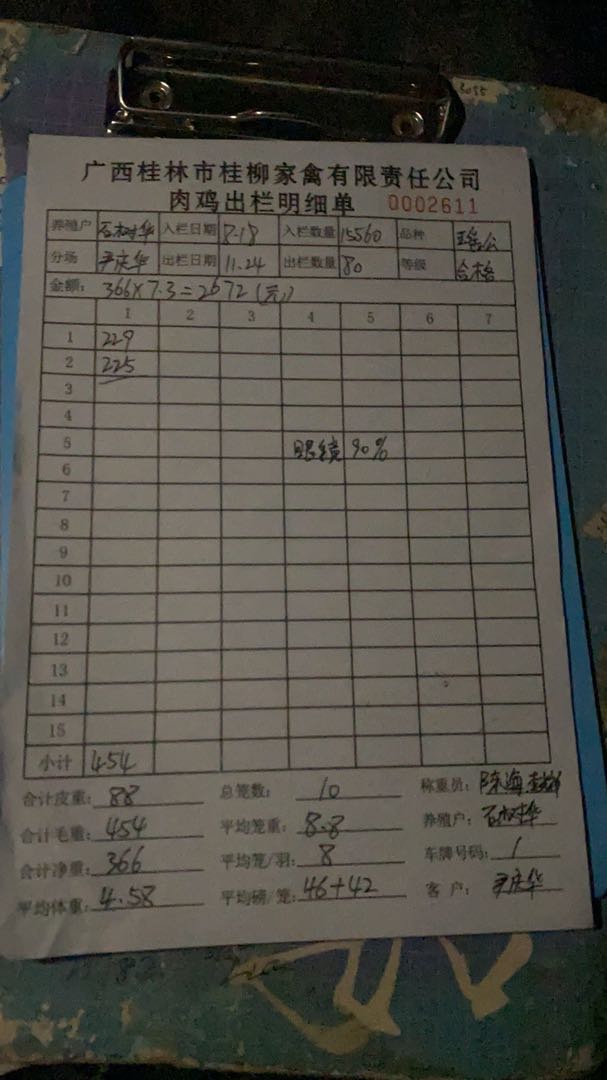 3055
广西桂林市桂柳家禽有限责任公司
肉鸡出栏明细单 0002611
养殖户 石树华 入栏日期 8.18 入栏数量 15560 品种 瑶公
分场 尹庆华 出栏日期 11.24 出栏数量 80 等级 合格
金额: 366×7.3=2672(元)
1 2 3 4 5 6 7
1 229
2 225
3
4
5 眼绩 90%
6
7
8
9
10
11
12
13
14
15
小计 454
合计皮重: 88 总笼数: 10 称重员: 陈海
合计毛重: 454 平均笼重: 8.8 养殖户: 石树华
合计净重: 366 平均笼/羽: 8 车牌号码: 1
平均体重: 4.58 平均磅/笼: 46+42 客户: 尹庆华